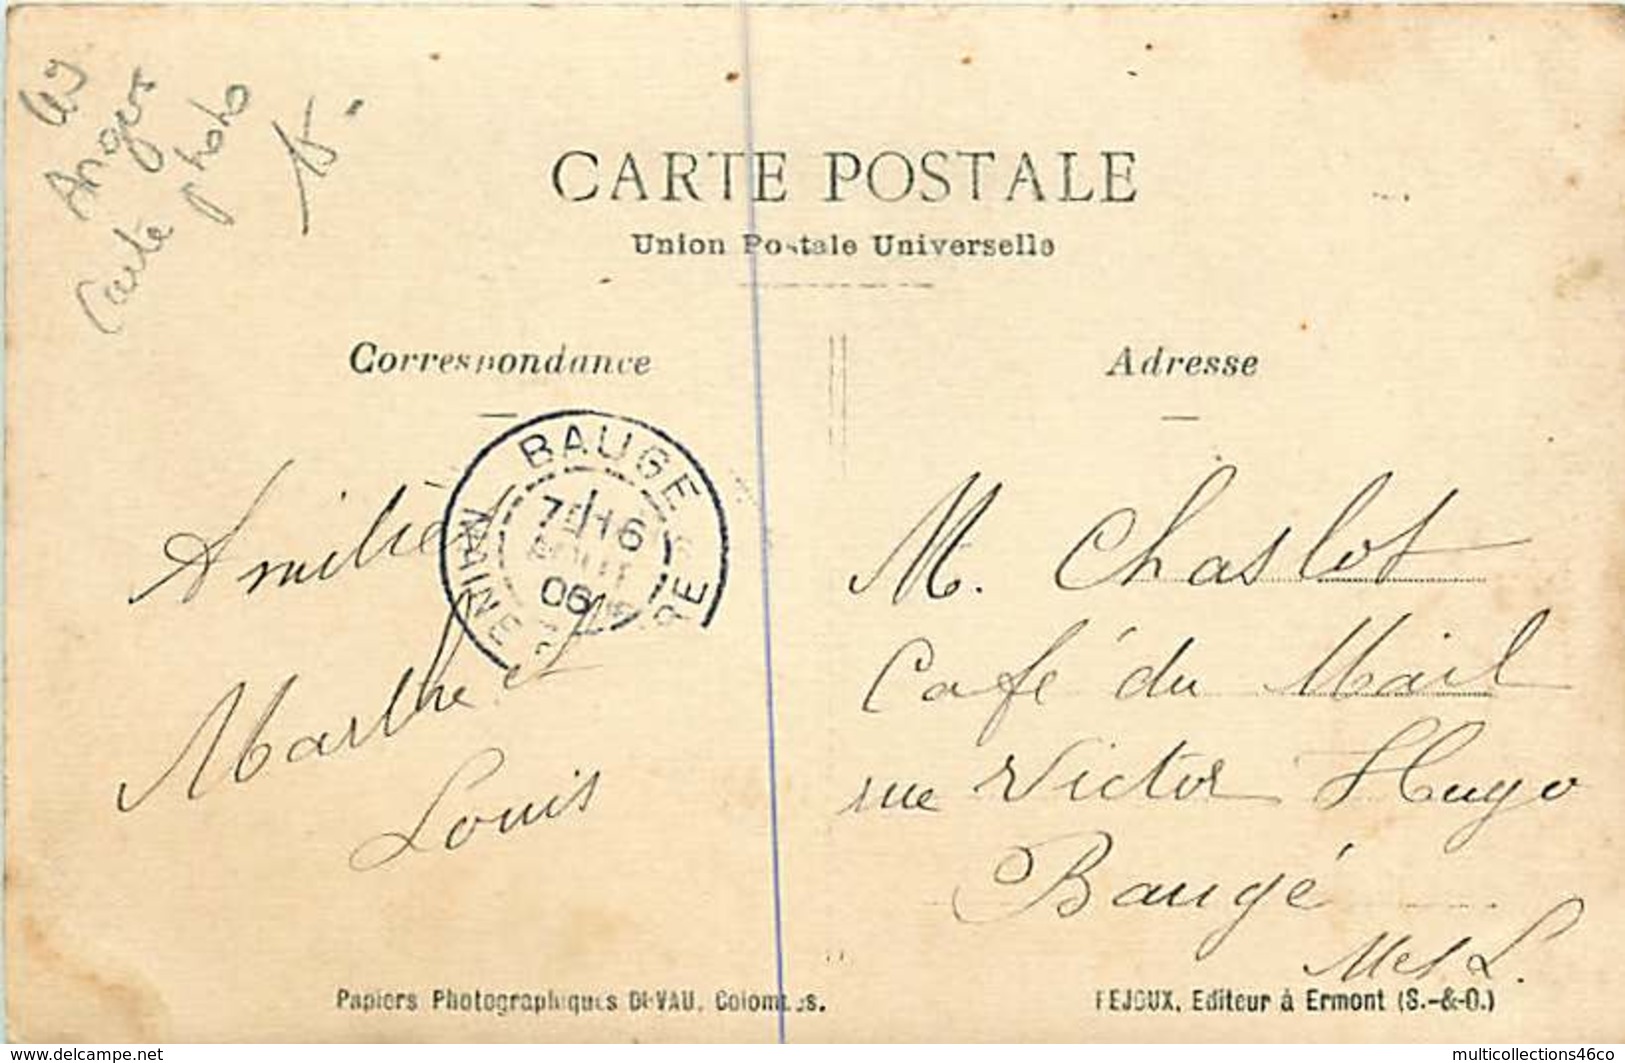 49
Angers
Carte photo
15-
CARTE POSTALE
Union Postale Universelle
Correspondance
Adresse
BAUGE
7E/16
AOUT
06
MAINE ET LOIRE
Amitiés
Marthe et
Louis
M. Chaslot
Café du Mail
rue Victor Hugo
Baugé
M et L.
Papiers Photographiques DEVAU, Colombes.
FEJOUX, Editeur à Ermont (S.-&-O.)
multicollections46co
www.delcampe.net